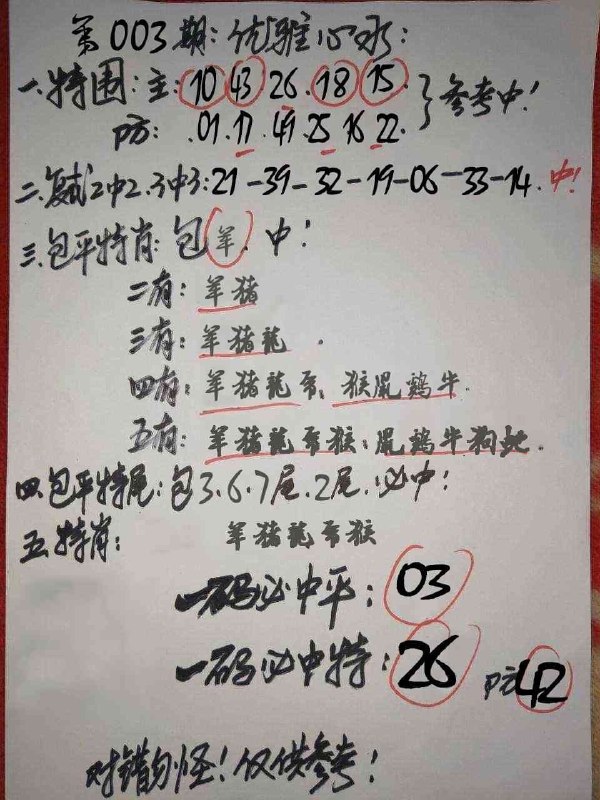 第003期:优雅心水:
一.特围:主:10 43 26.18 15.
防:.01.17.49.25 16 22. 参考中!
二.复试2中2.3中3:21-39-32-19-06-33-14.中!
三.包平特肖:包羊.中!
二有:羊猪
三有:羊猪龍.
四有:羊猪龍兔、猴鼠鷄牛.
五有:羊猪龍兔猴、鼠鷄牛狗蛇.
四.包平特尾:包3.6.7尾.2尾.必中!
五.特肖: 羊猪龍兔猴
一码必中平:03
一码必中特:26 防42
对错勿怪!仅供参考!